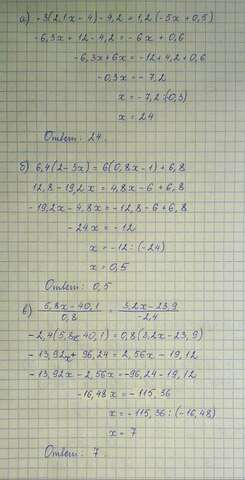 а) -3(2,1x-4)-4,2=1,2(-5x+0,5)
-6,3x+12-4,2=-6x+0,6
-6,3x+6x=-12+4,2+0,6
-0,3x=-7,2
x=-7,2:(-0,3)
x=24
Ответ: 24.
б) 6,4(2-3x)=6(0,8x-1)+6,8
12,8-19,2x=4,8x-6+6,8
-19,2x-4,8x=-12,8-6+6,8
-24x=-12
x=-12:(-24)
x=0,5
Ответ: 0,5
в) (5,8x-40,1)/0,8 = (3,2x-23,9)/-2,4
-2,4(5,8x-40,1)=0,8(3,2x-23,9)
-13,92x+96,24=2,56x-19,12
-13,92x-2,56x=-96,24-19,12
-16,48x=-115,36
x=-115,36:(-16,48)
x=7
Ответ: 7.